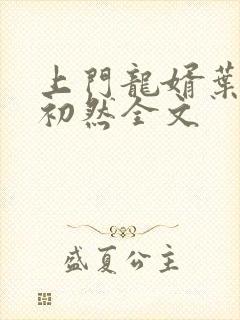 上門龍婿葉
初然全文
盛夏公主